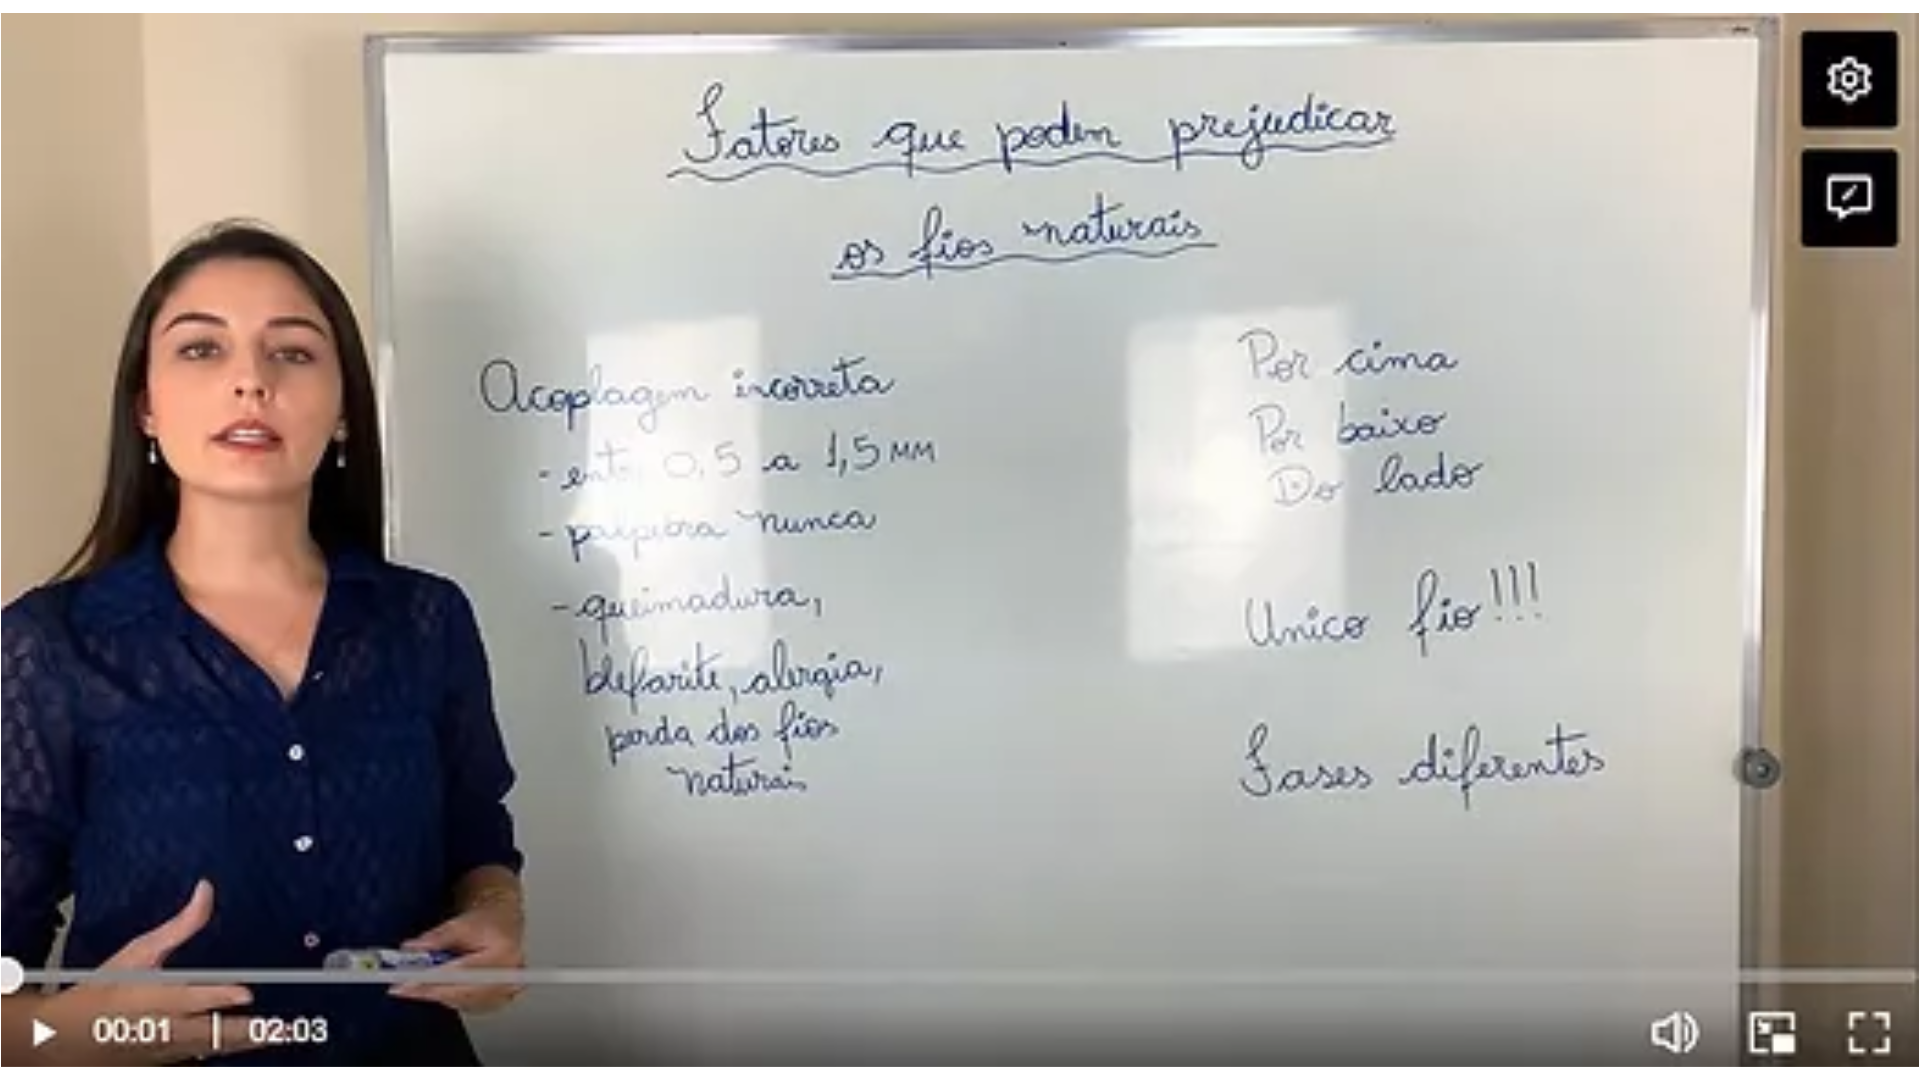 Fatores que podem prejudicar
os fios naturais
Acoplagem incorreta
- entre 0,5 a 1,5 MM
- palpebra nunca
- queimadura,
blefarite, alergia,
perda dos fios
naturais
Por cima
Por baixo
Do lado
Unico fio!!!
Fases diferentes
00:01 | 02:03